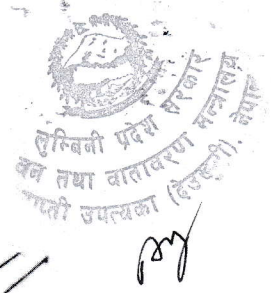 लुम्बिनी प्रदेश सरकार
वन तथा वातावरण मन्त्रालय
उपत्यका (देउखुरी), नेपाल